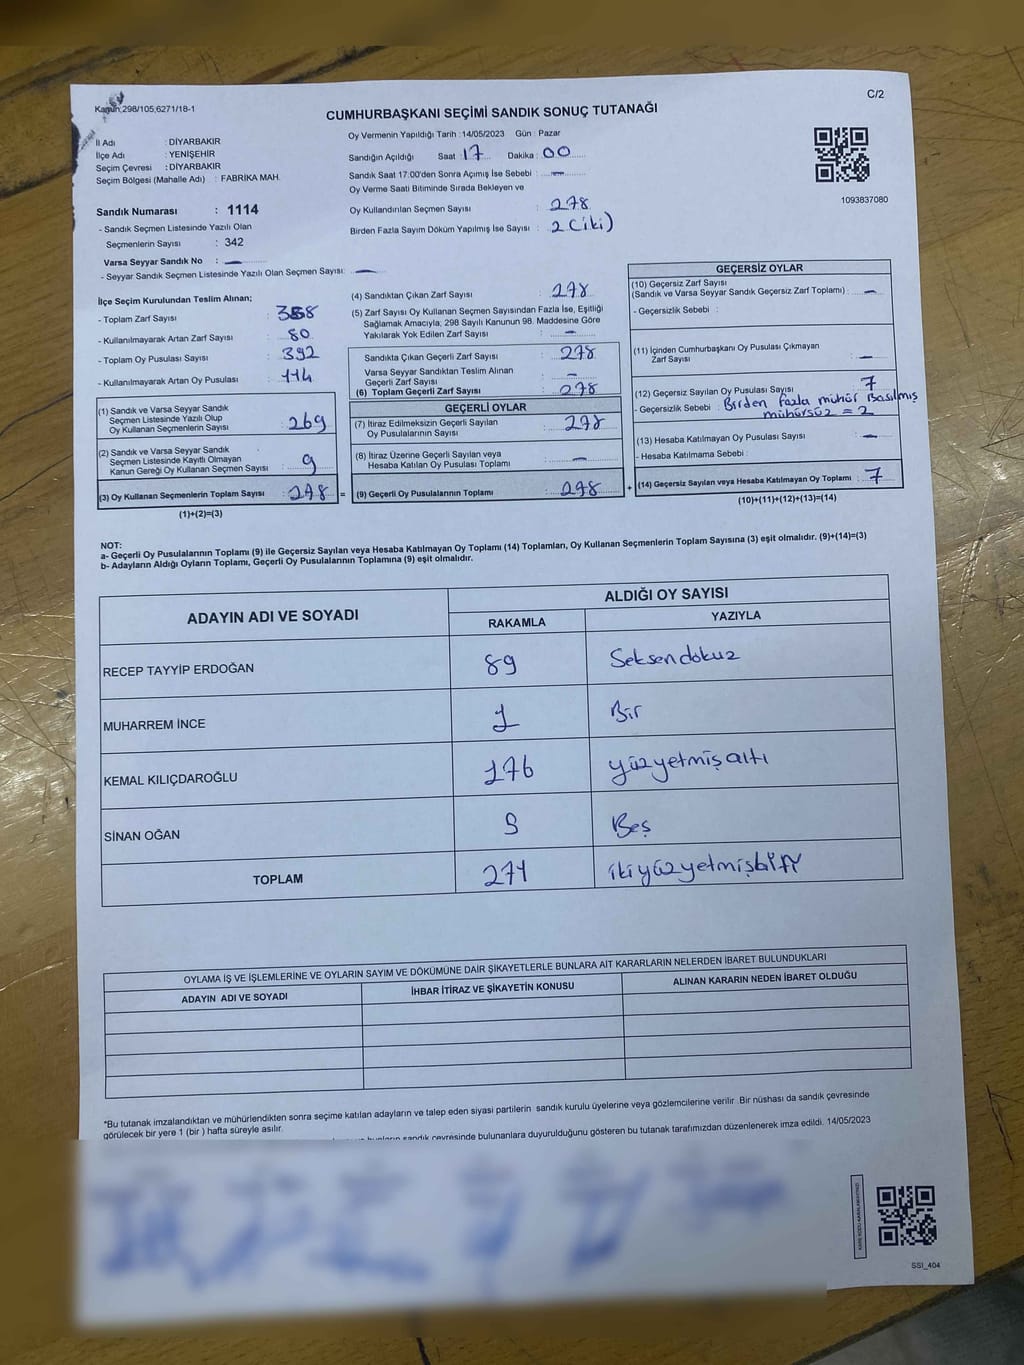 Kanun:298/105,6271/18-1
C/2
CUMHURBAŞKANI SEÇİMİ SANDIK SONUÇ TUTANAĞI
İl Adı : DİYARBAKIR
İlçe Adı : YENİŞEHİR
Seçim Çevresi : DİYARBAKIR
Seçim Bölgesi (Mahalle Adı) : FABRİKA MAH.
Sandık Numarası : 1114
- Sandık Seçmen Listesinde Yazılı Olan
Seçmenlerin Sayısı : 342
Varsa Seyyar Sandık No : —
- Seyyar Sandık Seçmen Listesinde Yazılı Olan Seçmen Sayısı: —
Oy Vermenin Yapıldığı Tarih : 14/05/2023 Gün : Pazar
Sandığın Açıldığı Saat : 17 Dakika : 00
Sandık Saat 17:00'den Sonra Açımış İse Sebebi : —
Oy Verme Saati Bitiminde Sırada Bekleyen ve
Oy Kullandırılan Seçmen Sayısı : 278
Birden Fazla Sayım Döküm Yapılmış İse Sayısı : 2 (iki)
1093837080
İlçe Seçim Kurulundan Teslim Alınan;
- Toplam Zarf Sayısı : 358
- Kullanılmayarak Artan Zarf Sayısı : 80
- Toplam Oy Pusulası Sayısı : 392
- Kullanılmayarak Artan Oy Pusulası : 114
(1) Sandık ve Varsa Seyyar Sandık
Seçmen Listesinde Yazılı Olup
Oy Kullanan Seçmenlerin Sayısı : 269
(2) Sandık ve Varsa Seyyar Sandık
Seçmen Listesinde Kayıtlı Olmayan
Kanun Gereği Oy Kullanan Seçmen Sayısı : 9
(3) Oy Kullanan Seçmenlerin Toplam Sayısı : 278 =
(1)+(2)=(3)
(4) Sandıktan Çıkan Zarf Sayısı : 278
(5) Zarf Sayısı Oy Kullanan Seçmen Sayısından Fazla İse, Eşitliği
Sağlamak Amacıyla, 298 Sayılı Kanunun 98. Maddesine Göre
Yakılarak Yok Edilen Zarf Sayısı : —
Sandıkta Çıkan Geçerli Zarf Sayısı : 278
Varsa Seyyar Sandıktan Teslim Alınan
Geçerli Zarf Sayısı : —
(6) Toplam Geçerli Zarf Sayısı : 278
GEÇERLİ OYLAR
(7) İtiraz Edilmeksizin Geçerli Sayılan
Oy Pusulalarının Sayısı : 278
(8) İtiraz Üzerine Geçerli Sayılan veya
Hesaba Katılan Oy Pusulası Toplamı : —
(9) Geçerli Oy Pusulalarının Toplamı : 278 +
GEÇERSİZ OYLAR
(10) Geçersiz Zarf Sayısı
(Sandık ve Varsa Seyyar Sandık Geçersiz Zarf Toplamı) : —
- Geçersizlik Sebebi :
(11) İçinden Cumhurbaşkanı Oy Pusulası Çıkmayan
Zarf Sayısı : —
(12) Geçersiz Sayılan Oy Pusulası Sayısı : 7
- Geçersizlik Sebebi : Birden fazla mühür Basılmış
mühürsüz = 2
(13) Hesaba Katılmayan Oy Pusulası Sayısı : —
- Hesaba Katılmama Sebebi :
(14) Geçersiz Sayılan veya Hesaba Katılmayan Oy Toplamı : 7
(10)+(11)+(12)+(13)=(14)
NOT:
a- Geçerli Oy Pusulalarının Toplamı (9) ile Geçersiz Sayılan veya Hesaba Katılmayan Oy Toplamı (14) Toplamları, Oy Kullanan Seçmenlerin Toplam Sayısına (3) eşit olmalıdır. (9)+(14)=(3)
b- Adayların Aldığı Oyların Toplamı, Geçerli Oy Pusulalarının Toplamına (9) eşit olmalıdır.
ADAYIN ADI VE SOYADI ALDIĞI OY SAYISI
RAKAMLA YAZIYLA
RECEP TAYYİP ERDOĞAN 89 Seksendokuz
MUHARREM İNCE 1 Bir
KEMAL KILIÇDAROĞLU 176 yüzyetmişaltı
SİNAN OĞAN 5 Beş
TOPLAM 271 ikiyüzyetmişbir
OYLAMA İŞ VE İŞLEMLERİNE VE OYLARIN SAYIM VE DÖKÜMÜNE DAİR ŞİKAYETLERLE BUNLARA AİT KARARLARIN NELERDEN İBARET BULUNDUKLARI
ADAYIN ADI VE SOYADI İHBAR İTİRAZ VE ŞİKAYETİN KONUSU ALINAN KARARIN NEDEN İBARET OLDUĞU
*Bu tutanak imzalandıktan ve mühürlendikten sonra seçime katılan adayların ve talep eden siyasi partilerin sandık kurulu üyelerine veya gözlemcilerine verilir. Bir nüshası da sandık çevresinde
görülecek bir yere 1 (bir) hafta süreyle asılır.
sandık çevresinde bulunanlara duyurulduğunu gösteren bu tutanak tarafımızdan düzenlenerek imza edildi. 14/05/2023
SSI_404